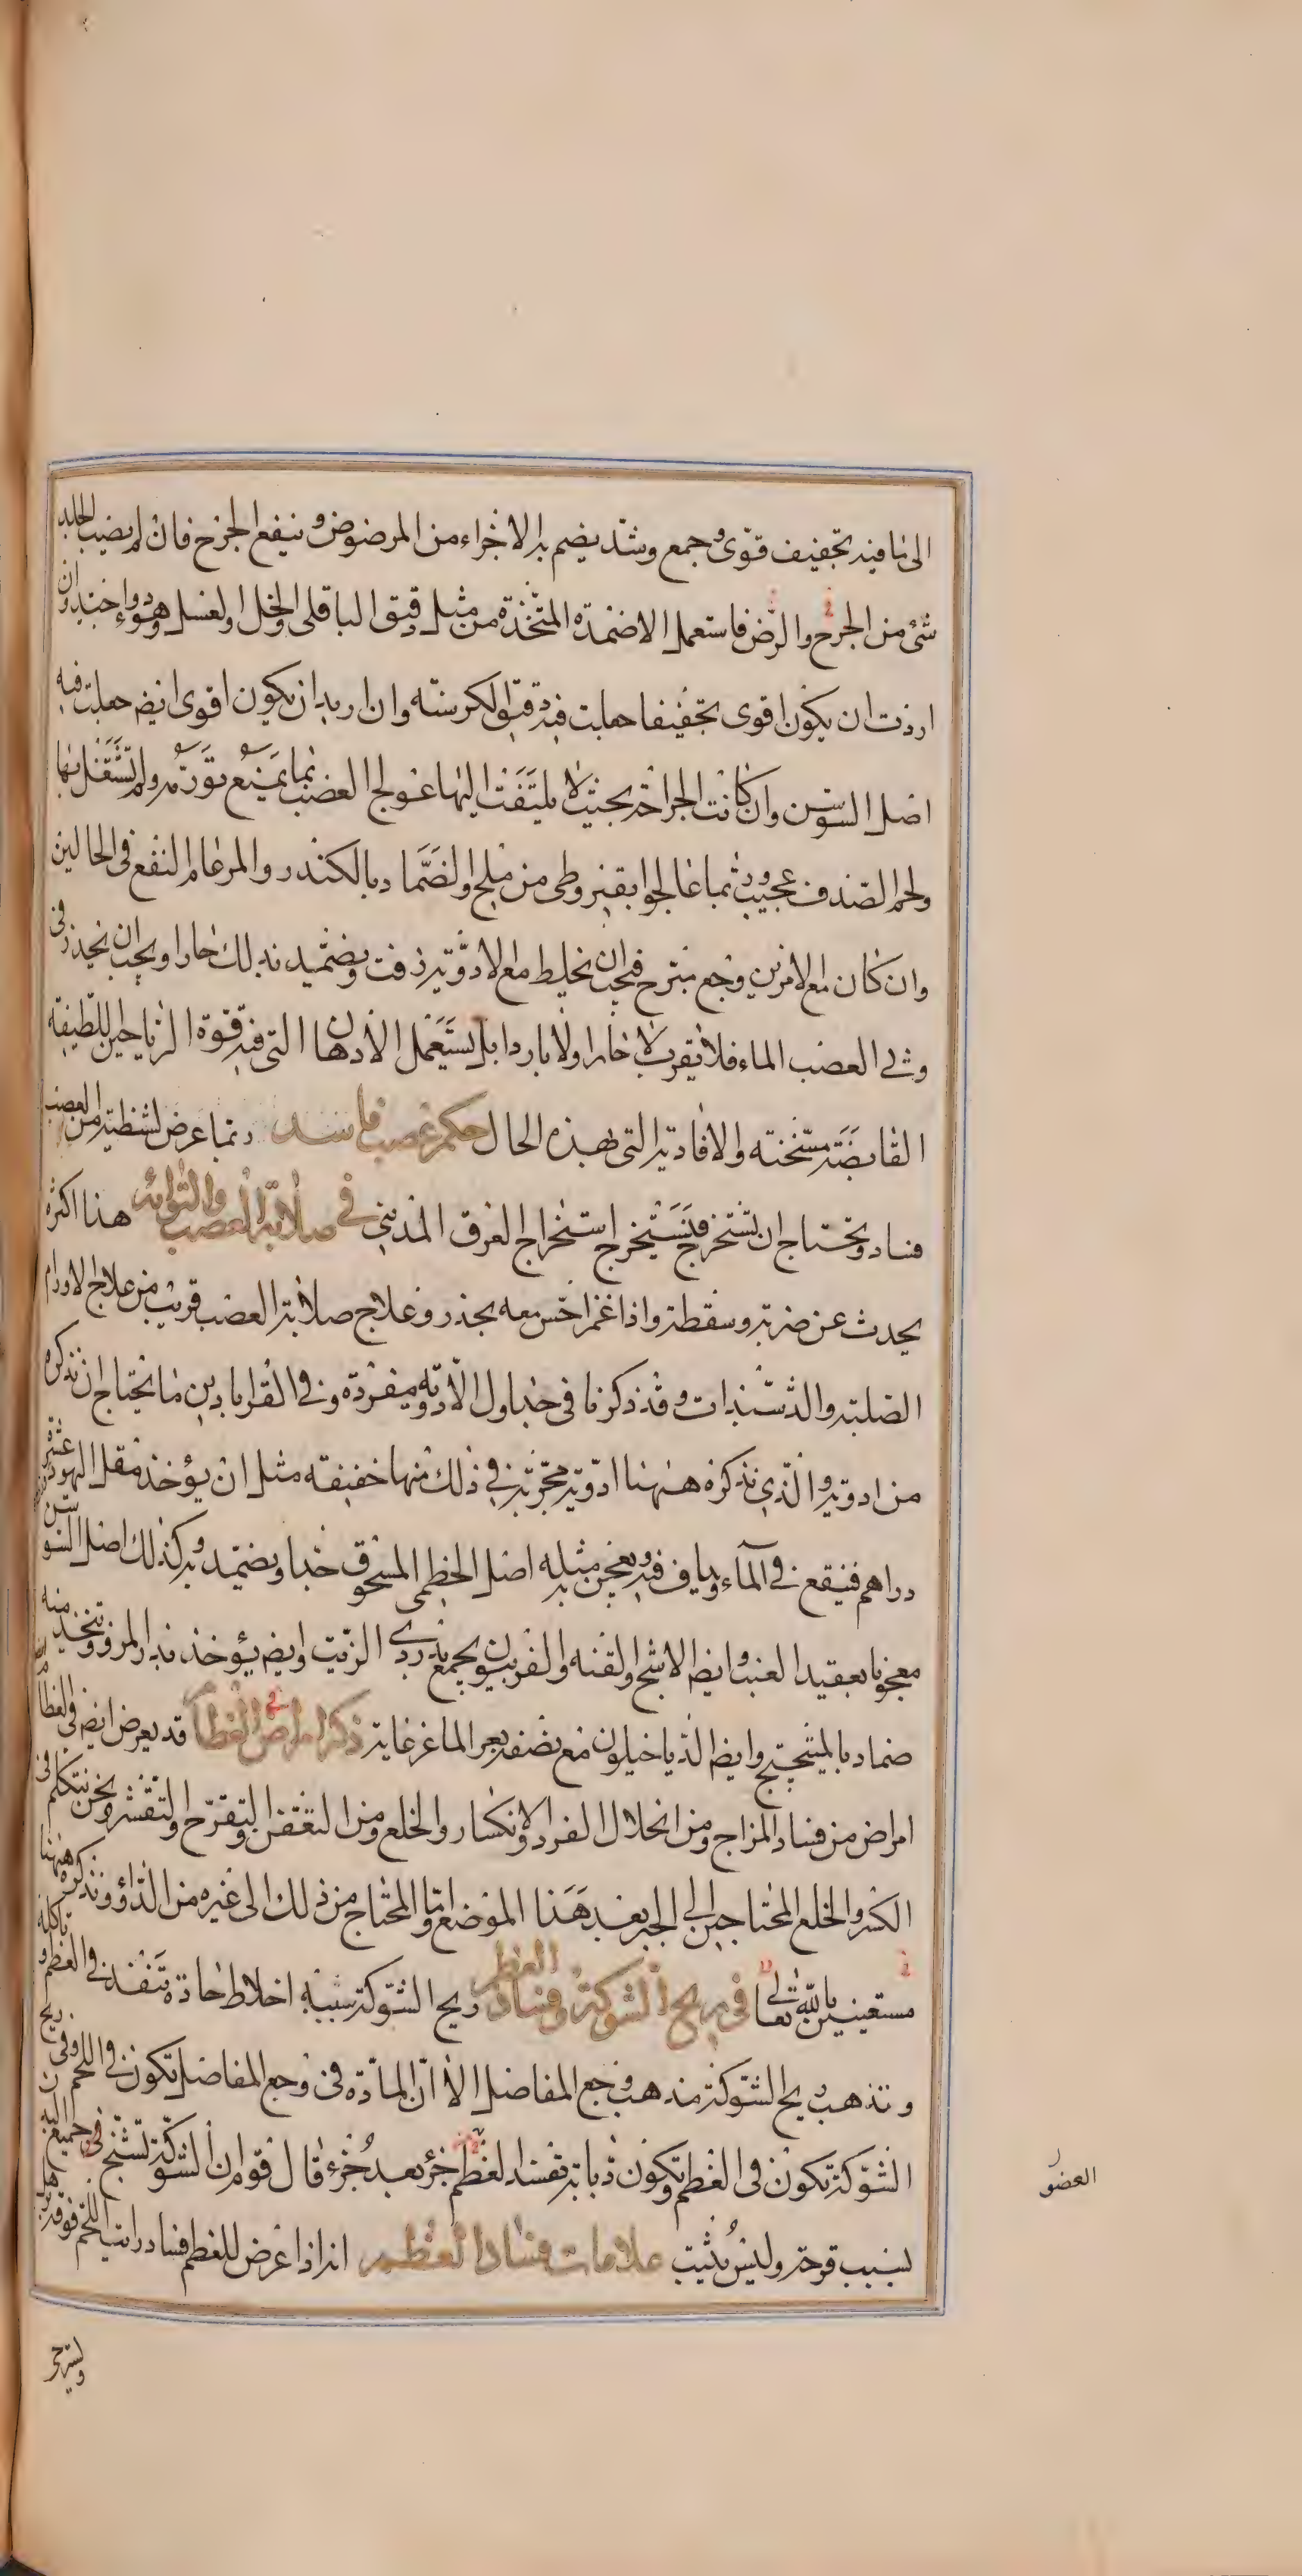 الى ما فيه تجفيف قوى وجمع وشد يضم به الاجزاء من المرضوض وينفع الجرح فان لم يصب الجلد
شئ من الجرح والرض فاستعمل الاضمدة المتخذة من مثل دقيق الباقلى والخل والعسل وهو دواء جيد وان
اردت ان يكون اقوى تجفيفا جعلت فيه دقيق الكرسنه وان اريد ان يكون اقوى ايضا جعلت فيه
اصل السوسن وان كانت الجراحة بحيث لا يلتفت اليها عولج العصب بما يمنع تورمه ولم تشتغل بها
ولحم الصدف عجيب وربما عالجوا بقيروطى من ملح والضماد بالكندر والمر عام النفع فى الحالين
وان كان مع الامرين وجع مبرح فيجب ان يخلط مع الادوية زفت ويضمد بذلك حارا ويجب ان يحذر فى
وثى العصب الماء فلا يقربه لا حارا ولا باردا بل يستعمل الادهان التى فيه قوة الرياحين اللطيفة
القابضة مسخنة والافاويه التى بهذه الحال حكم عصب فاسد ربما عرض لشظية من العصب
فساد وتحتاج ان تستخرج فتستخرج استخراج العرق المدينى فى صلابة العصب والتوائه هذا اكثره
يحدث عن ضربة وسقطة واذا غمز احس معه بخدر وعلاج صلابة العصب قريب من علاج الاورام
الصلبة والدشبذات وقد ذكرنا فى جداول الادوية مفردة وفى القراباذين ما يحتاج ان نذكره
من ادوية والذى نذكره ههنا ادوية مجربة فى ذلك منها خفيفة مثل ان يؤخذ مقل اليهود عشرة
دراهم فينقع فى الماء ويداف فيه ويعجن بمثله اصل الخطمى المسحوق جيدا ويضمد به وكذلك اصل السوسن
معجونا بعقيد العنب وايضا الاشج والقنه والفربيون يجمع بدردى الزيت وايضا يؤخذ بذر المرو ويتخذ منه
ضماد بالميبختج وايضا الدياخيلون مع نصفه بعر الماعز غاية ذكر امراض العظام قد يعرض ايضا فى العظام
امراض من فساد المزاج ومن انحلال الفرد والانكسار والخلع ومن التعفن والتقرح والتقشر ونحن نتكلم فى
الكسر والخلع المحتاجين الى الجبر بعد هذا الموضع واما المحتاج من ذلك الى غيره من الدواء ونذكره ههنا
مستعينين بالله تعالى فى ريح الشوكة وفساد العظم ريح الشوكة سببه اخلاط حادة تنفذ فى العظم وتاكله
وتذهب ريح الشوكة مذهب وجع المفاصل الا ان المادة فى وجع المفاصل تكون فى اللحم وفى ريح
الشوكة تكون فى العظم وتكون دبابة تفسد العظم جزء بعد جزء قال قوم ان الشوكة تشنج فى جميع البدن
بسبب قرحة وليس بثبت علامات فساد العظم انه اذا عرض للعظم فساد رايت اللحم فوقه
العضو